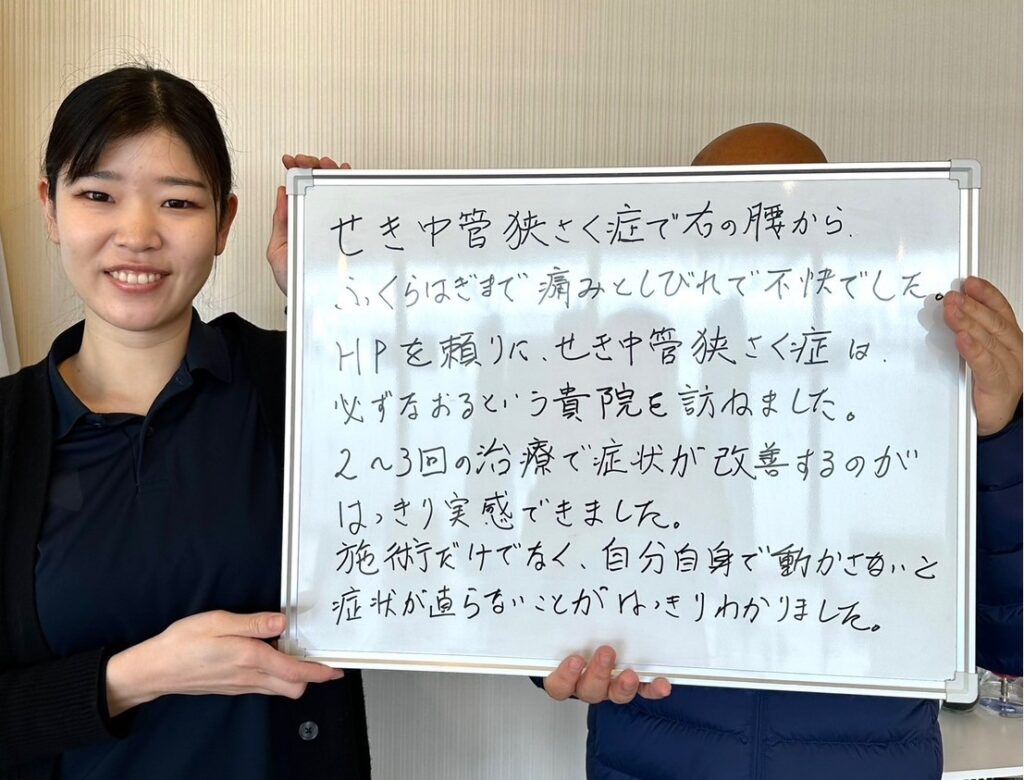 せき中管狭さく症で右の腰から、
ふくらはぎまで痛みとしびれで不快でした。
HPを頼りに、せき中管狭さく症は、
必ずなおるという貴院を訪ねました。
2～3回の治療で症状が改善するのが
はっきり実感できました。
施術だけでなく、自分自身で動かさないと
症状が直らないことがはっきりわかりました。